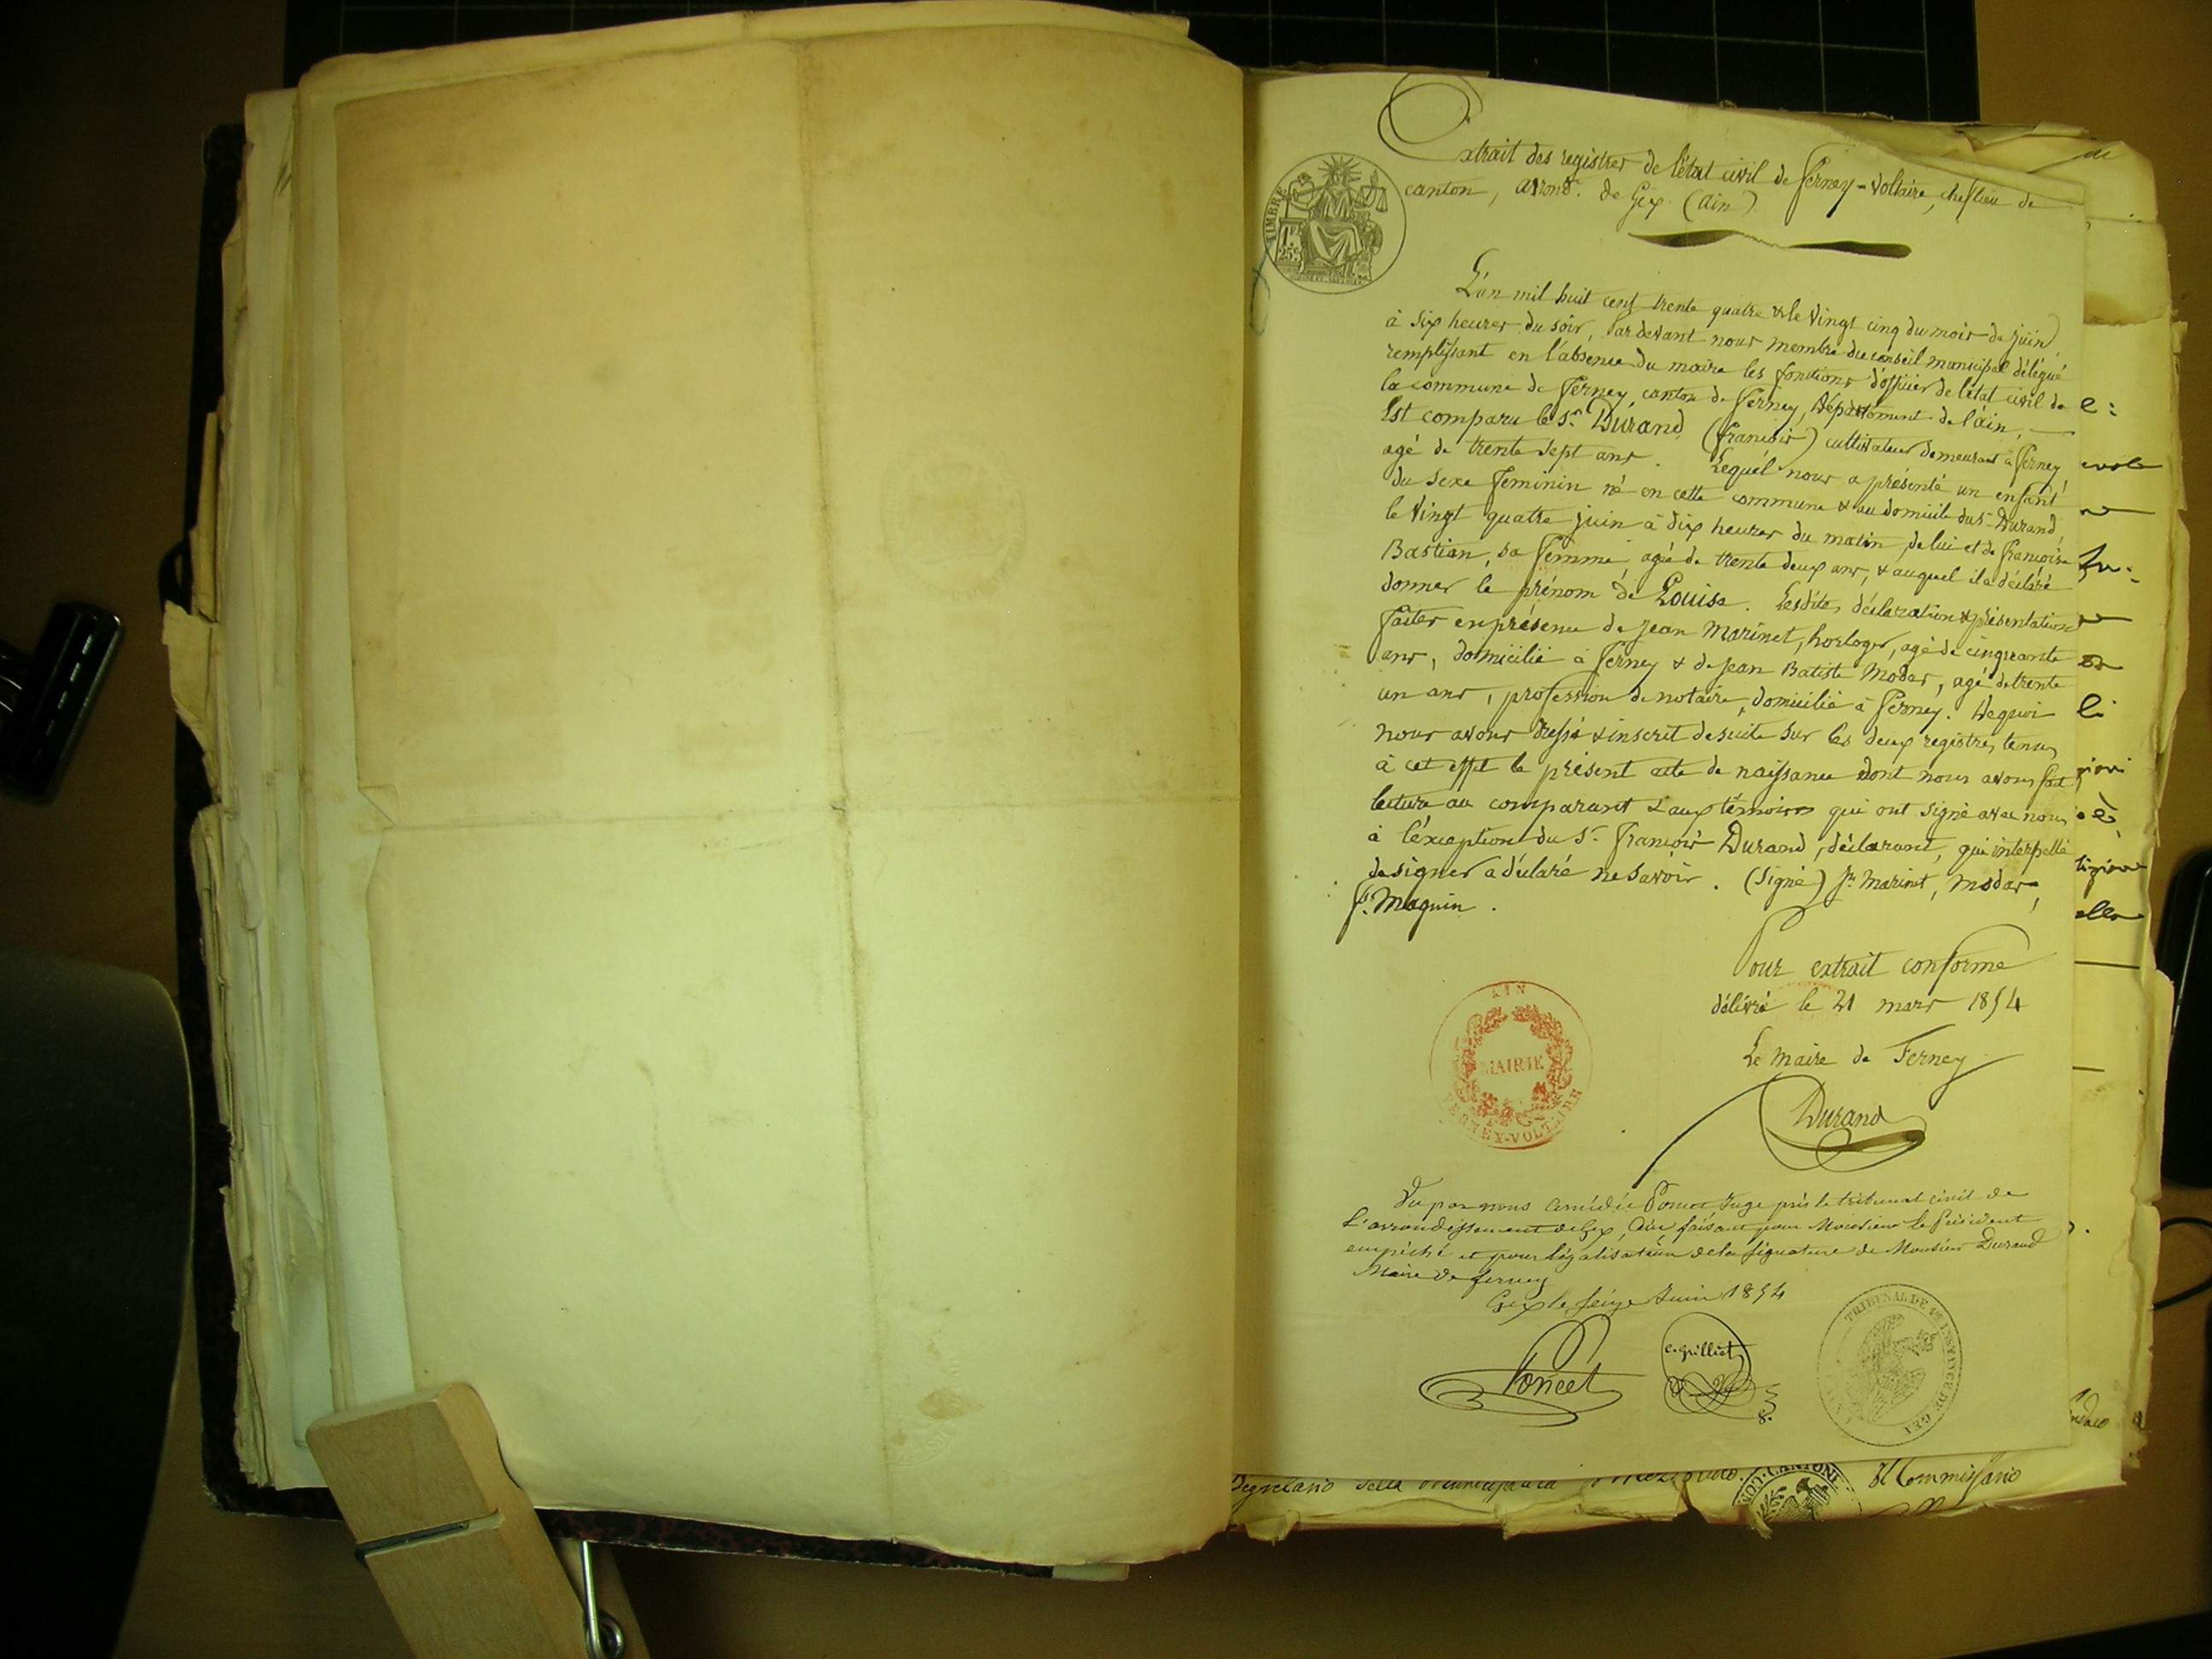 Extrait des registres de l'état civil de Ferney-Voltaire, cheflieu de
canton, arrond. de Gex (Ain)
TIMBRE
1F
25c
L'an mil huit cent trente quatre & le vingt cinq du mois de juin,
à six heures du soir, Pardevant nous membre du conseil municipal délégué
remplissant en l'absence du maire les fonctions d'officier de l'état civil de
la commune de Ferney, canton de Ferney, Département de l'ain,
Est comparu le Sr. Durand (françois) cultivateur demeurant à Ferney,
agé de trente sept ans. Lequel nous a présenté un enfant
du sexe feminin né en cette commune & au domicile du Sr Durand,
le vingt quatre juin à dix heures du matin, de lui et de françoise
Bastian, sa femme, agée de trente deux ans, & auquel il a déclaré
donner le prénom de Louise. Lesdites déclaration & présentation
faites en présence de Jean Marinet, horloger, agé de cinquante
ans, domicilié à Ferney & de Jean Batiste Modas, agé de trente
un ans, profession de notaire, domicilié à Ferney. Dequoi
nous avons dressé & inscrit desuite sur les deux registres tenus
à cet effet le présent acte de naissance dont nous avons fait
lecture au comparant & aux témoins qui ont signé avec nous
à l'éxception du Sr françois Durand, déclarant, qui interpellé
de signer a déclaré ne savoir. (Signé) Jn Marinet, Modas,
Maguin.
Pour extrait conforme
délivré le 21 mars 1854
Le Maire de Ferney
Durand
AIN
MAIRIE
FERNEY-VOLTAIRE
Vu par nous Amédée Poncet Juge près le tribunal civil de
l'arrondissement de Gex, Ain, faisant pour Monsieur le Président
empêché et pour légalisation de la signature de Monsieur Durand
Maire de ferney
Gex le seize Juin 1854
Poncet
c. grilliet
TRIBUNAL DE 1re INSTANCE DE GEX
Segretario della Municipalità
CANTONE
Il Commissario